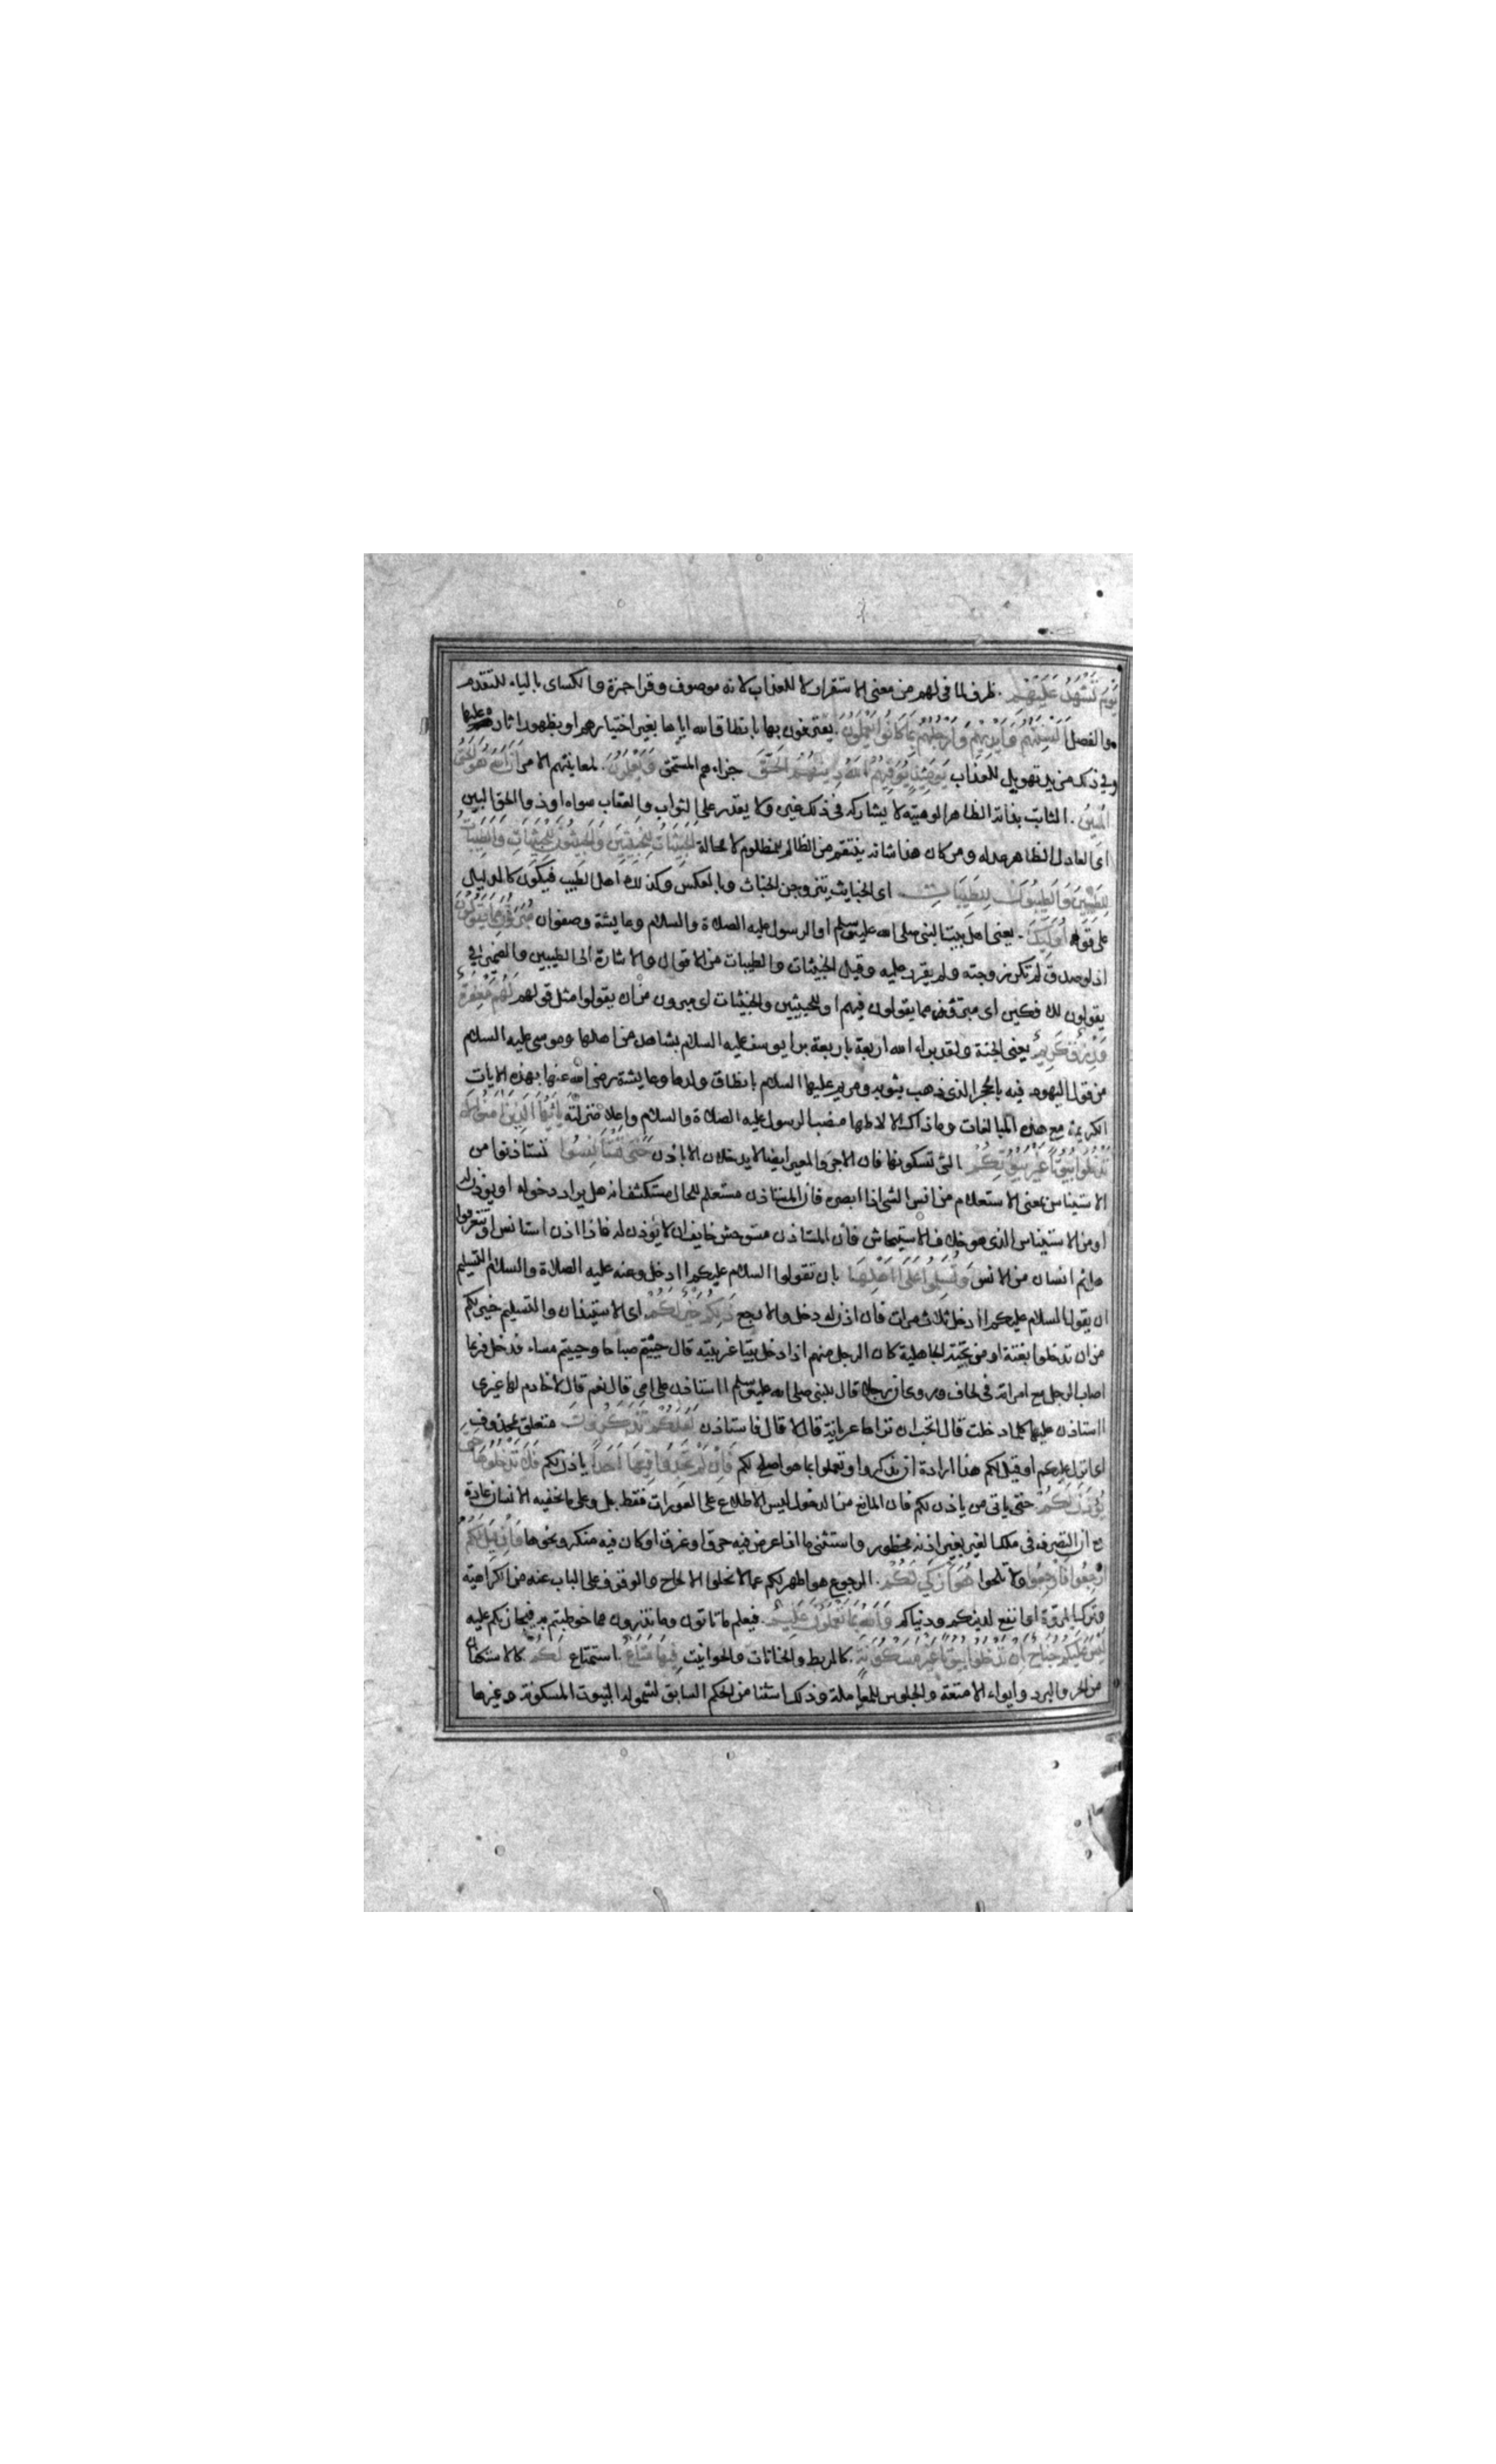 يَوْمَ تَشْهَدُ عَلَيْهِمْ . ظرف لما فى لهم من معنى الاستقرار لا للعذاب لانه موصوف وقرا حمزة والكساى بالياء للتقدم
والفصل اَلْسِنَتُهُمْ وَاَيْدِيهِمْ وَاَرْجُلُهُمْ بِمَا كَانُوا يَعْمَلُونَ . يعترفون بها بانطاق الله اياها بغير اختيارهم او بظهور اثاره عليها
وفى ذلك مزيد تهويل للعذاب يَوْمَئِذٍ يُوَفِّيهِمُ اللهُ دِينَهُمُ الْحَقَّ جزاءهم المستحق وَيَعْلَمُونَ . لمعاينتهم الامر اَنَّ اللهَ هُوَ الْحَقُّ
الْمُبِينُ . الثابت بذاته الظاهر الوهيته لا يشاركه فى ذلك غيره ولا يقدر على الثواب والعقاب سواه او ذو الحق البين
اى العادل الظاهر عدله ومن كان هذا شانه ينتقم من الظالم للمظلوم لا محالة اَلْخَبِيثَاتُ لِلْخَبِيثِينَ وَالْخَبِيثُونَ لِلْخَبِيثَاتِ وَالطَّيِّبَاتُ
لِلطَّيِّبِينَ وَالطَّيِّبُونَ لِلطَّيِّبَاتِ اى الخبايث يتزوجن الخباث وبالعكس وكذلك اهل الطيب فيكون كالدليل
على قوله اُولٰئِكَ . يعنى اهل بيت النبى صلى الله عليه وسلم او الرسول عليه الصلاة والسلام وعايشة وصفوان مُبَرَّؤُنَ مِمَّا يَقُولُونَ
اذ لو صدق لم تكن زوجته ولم يقرر عليه وقيل الخبيثات والطيبات من الاقوال والاشارة الى الطيبين والضمير فى
يقولون للافكين اى مبرؤن مما يقولون فيهم او للخبيثين والخبيثات اى مبرون من ان يقولوا مثل قولهم لَهُمْ مَغْفِرَةٌ
وَرِزْقٌ كَرِيمٌ يعنى الجنة ولقد براء الله اربعة باربعة برا يوسف عليه السلام بشاهد من اهلها وموسى عليه السلام
من قول اليهود فيه بالحجر الذى ذهب بثوبه ومريم عليها السلام بانطاق ولدها وعايشة رضى الله عنها بهذه الايات
الكريمة مع هذه المبالغات وما ذاك الا لاظهار منصب الرسول عليه الصلاة والسلام واعلاء منزلته يَا اَيُّهَا الَّذِينَ اٰمَنُوا لَا
تَدْخُلُوا بُيُوتًا غَيْرَ بُيُوتِكُمْ التى تسكونها فان الاجر والمعير ايضا لا يدخلان الا باذن حَتّٰى تَسْتَاْنِسُوا تستاذنوا من
الاستيناس بمعنى الاستعلام من انس الشى اذا ابصره فان المستاذن مستعلم للحال مستكشف انه هل يراد دخوله او يؤذن له
او من الاستيناس الذى هو خلاف الاستيحاش فان المستاذن مستوحش خايف ان لا يؤذن له فاذا اذن استانس او تتعرفوا
هل ثم انسان من الانس وَتُسَلِّمُوا عَلٰى اَهْلِهَا بان تقولوا السلام عليكم اادخل وعنه عليه الصلاة والسلام التسليم
ان يقول السلام عليكم اادخل ثلاث مرات فان اذن له دخل والا رجع ذٰلِكُمْ خَيْرٌ لَكُمْ اى الاستيذان والتسليم خير لكم
من ان تدخلوا بغتة او من تحية الجاهلية كان الرجل منهم اذا دخل بيتا غير بيته قال حييتم صباحا وحييتم مساء فدخل فربما
اصاب الرجل مع امراته فى لحاف وروى ان رجلا قال للنبى صلى الله عليه وسلم ااستاذن على امى قال نعم قال لا خادم لها غيرى
ااستاذن عليها كلما دخلت قال اتحب ان تراها عريانة قال لا قال فاستاذن لَعَلَّكُمْ تَذَكَّرُونَ متعلق بمحذوف
اى انزل عليكم او قيل لكم هذا ارادة ان تذكروا وتعملوا بما هو اصلح لكم فَاِنْ لَمْ تَجِدُوا فِيهَا اَحَدًا ياذن لكم فَلَا تَدْخُلُوهَا حَتّٰى
يُؤْذَنَ لَكُمْ حتى ياتى من ياذن لكم فان المانع من الدخول ليس الاطلاع على العورات فقط بل وعلى ما تخفيه الانسان عادة
مع ان التصرف فى ملك الغير بغير اذنه محظور واستثنى ما اذا عرض فيه حرق او غرق او كان فيه منكر ونحوها وَاِنْ قِيلَ لَكُمُ
ارْجِعُوا فَارْجِعُوا ولا تلحوا هُوَ اَزْكٰى لَكُمْ . الرجوع هو اطهر لكم عما لا تخلوا الالحاح والوقوف على الباب عنه من الكراهية
وترك المروة او انفع لدينكم ودنياكم وَاللهُ بِمَا تَعْمَلُونَ عَلِيمٌ . فيعلم ما تاتون وما تذرون مما خوطبتم به فيجازيكم عليه
لَيْسَ عَلَيْكُمْ جُنَاحٌ اَنْ تَدْخُلُوا بُيُوتًا غَيْرَ مَسْكُونَةٍ . كالربط والخانات والحوانيت فِيهَا مَتَاعٌ . استمتاع لَكُمْ كالاستكنان
من الحر والبرد وايواء الامتعة والجلوس للمعاملة وذلك استثنا من الحكم السابق لشموله البيوت المسكونة وغيرها